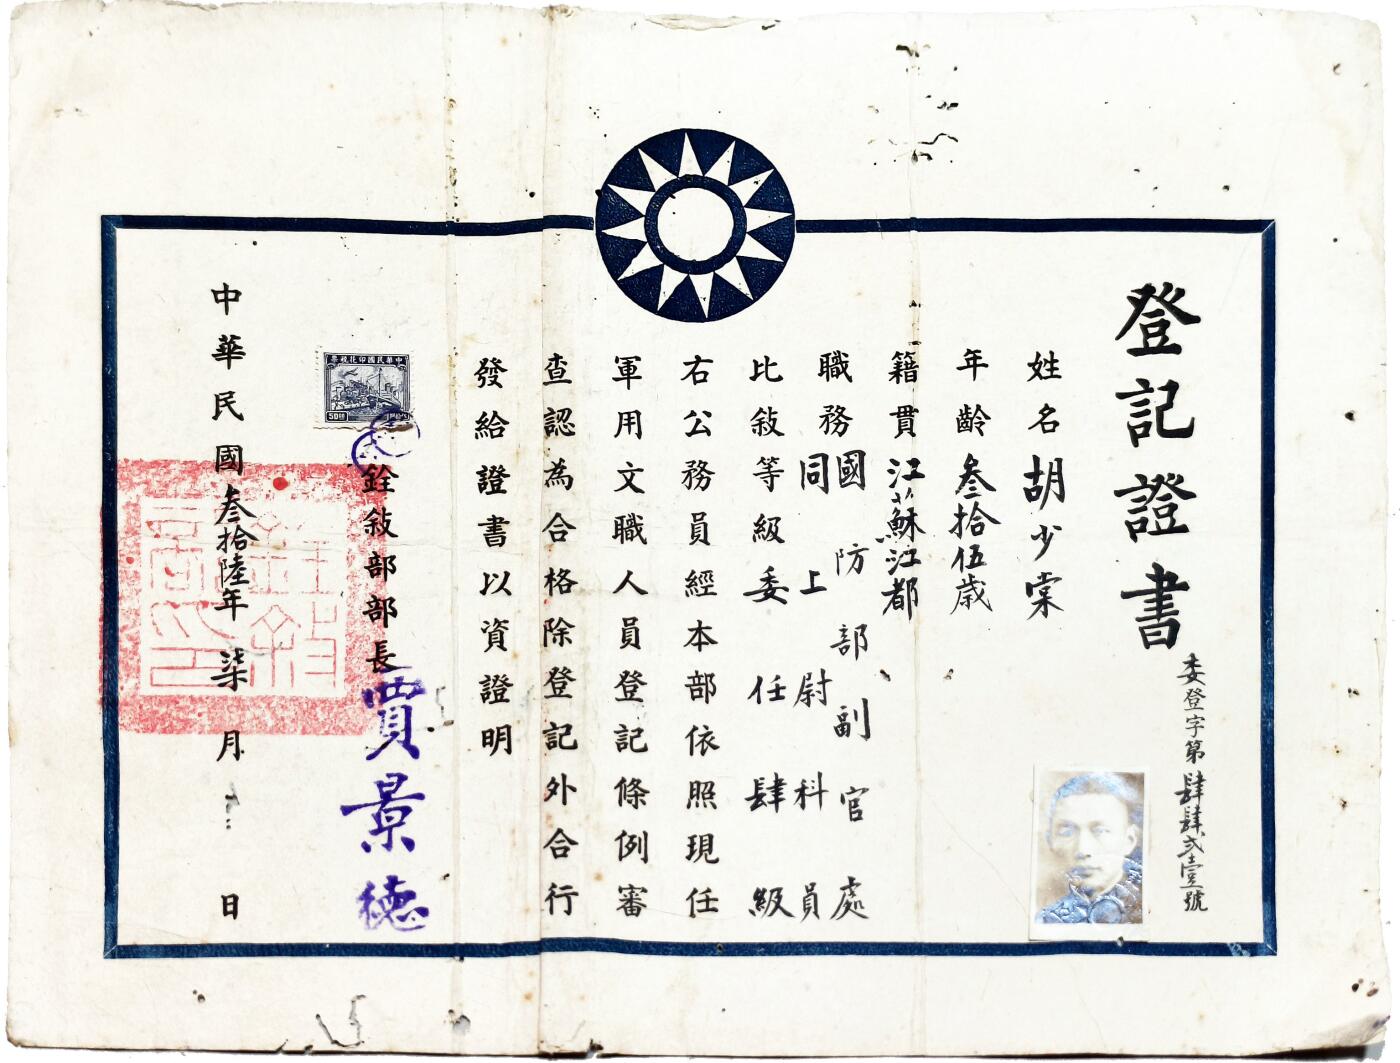 登記證書
委登字第肆肆弍壹號
姓名胡少棠
年齡叁拾伍歲
籍貫江蘇江都
職務國防部副官處
同上尉科員
比敍等級委任肆級
右公務員經本部依照現任
軍用文職人員登記條例審
查認為合格除登記外合行
發給證書以資證明
票稅花印國民華中
50
銓敍部部長賈景德
中華民國叁拾陸年柒月 日